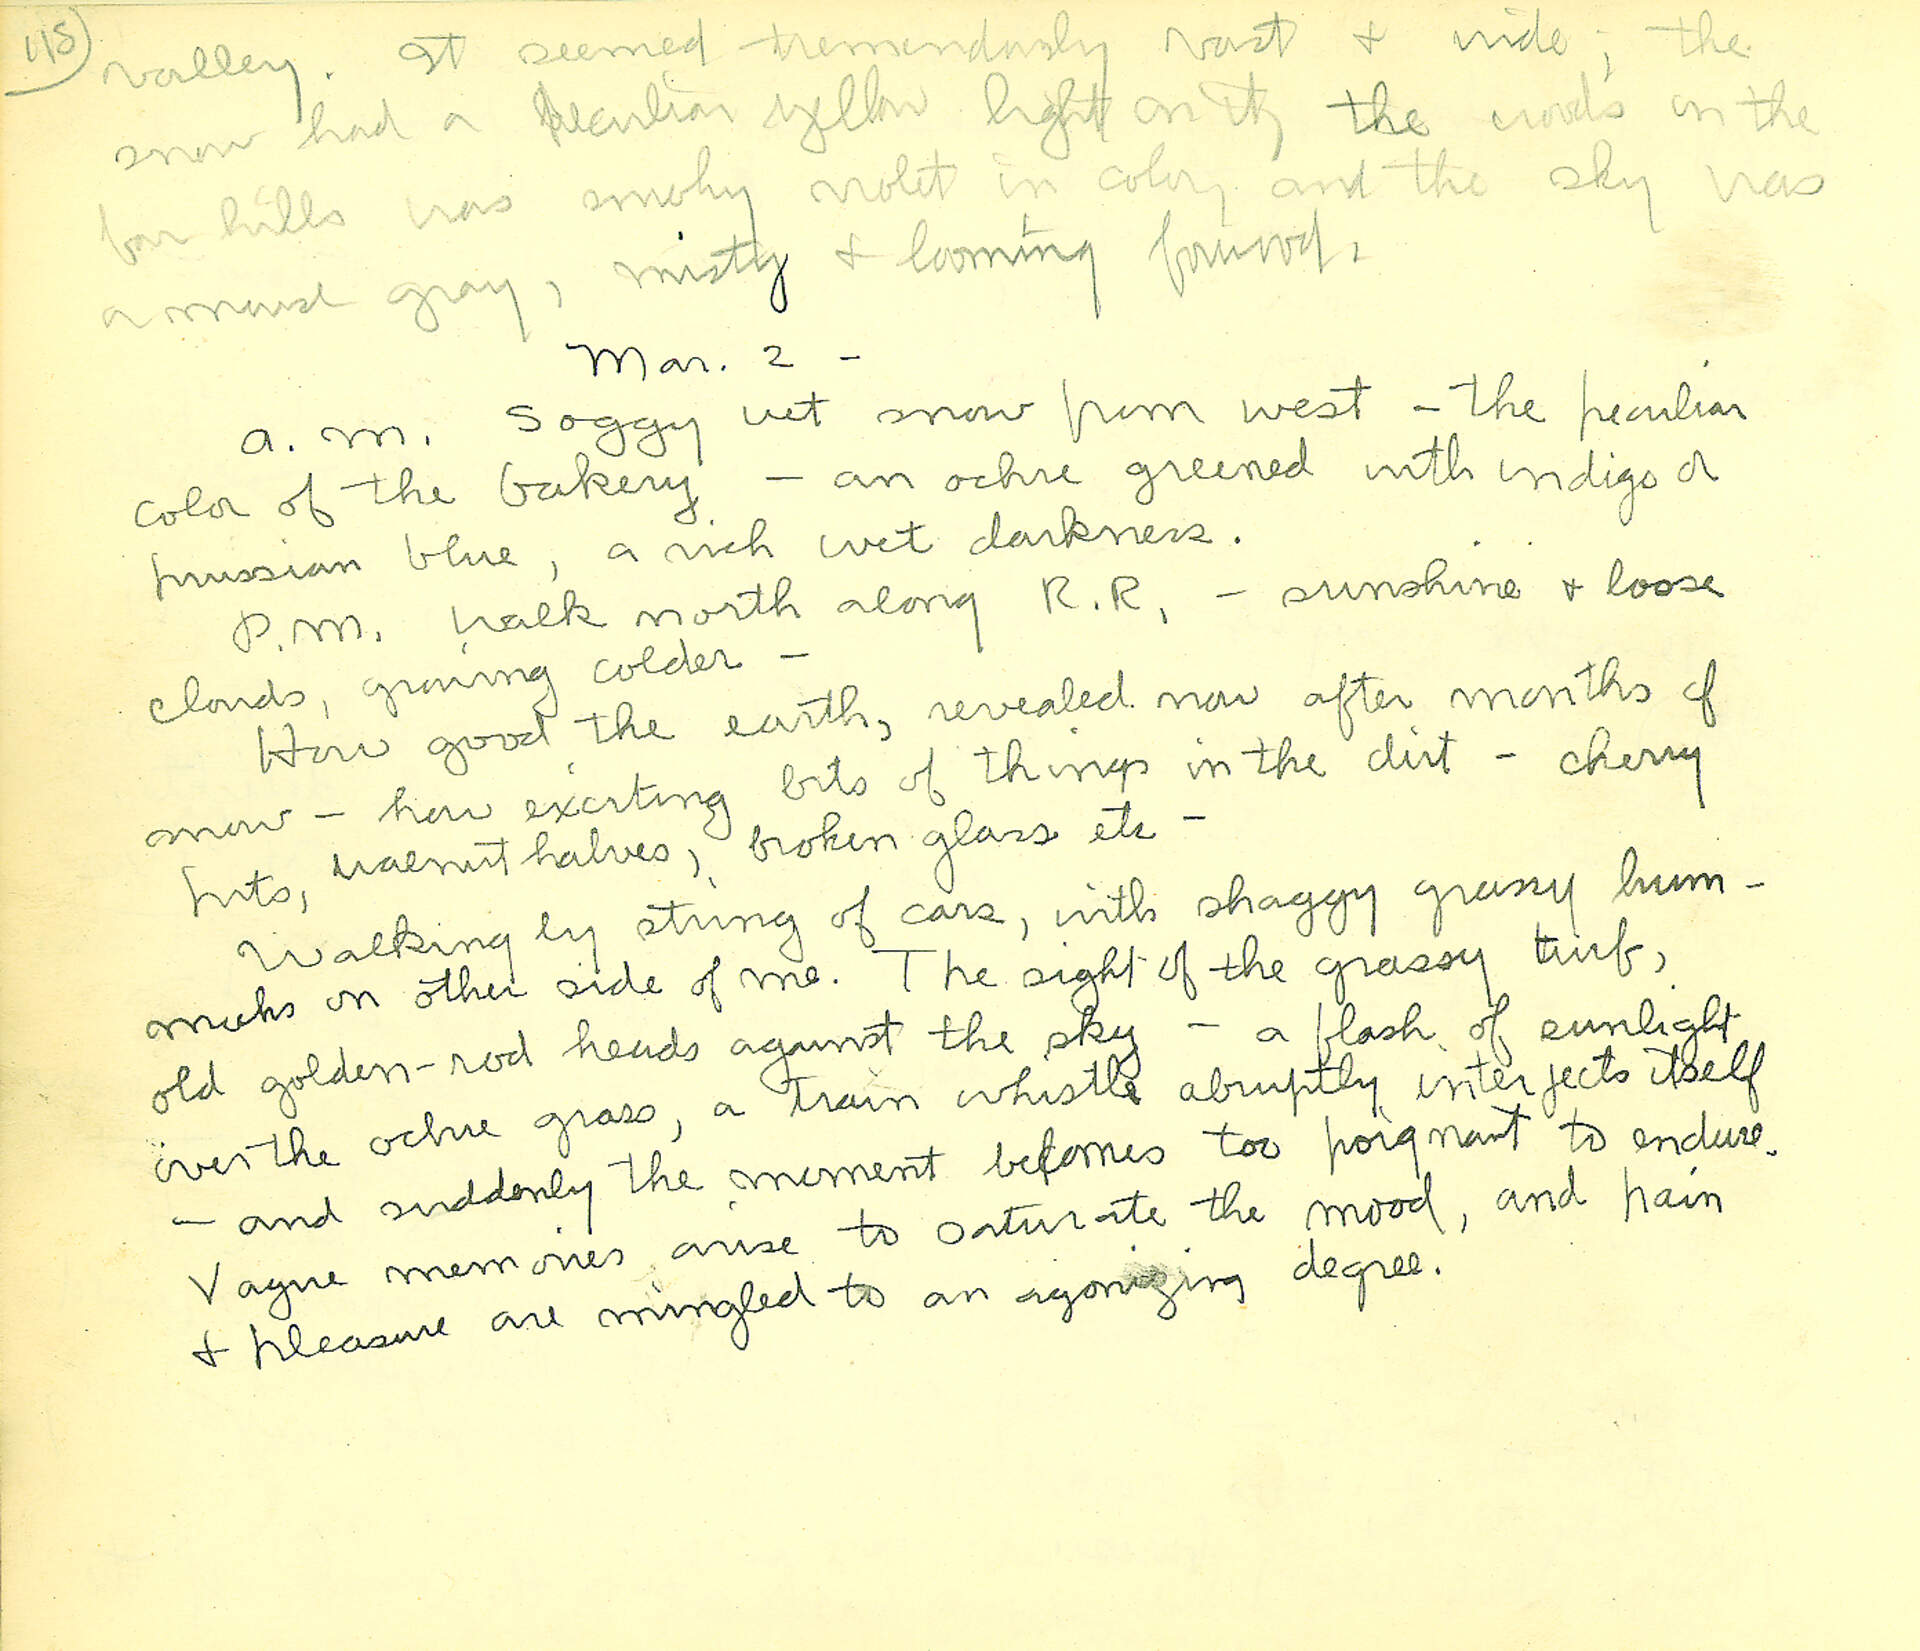 115)
valley. It seemed tremendously vast & wide; the
snow had a peculiar yellow light on it, the woods on the
far hills was smoky violet in color, and the sky was
a mouse gray, misty & looming forward.
Mar. 2 -
a.m. Soggy wet snow from west - the peculiar
color of the bakery - an ochre greened with indigo or
prussian blue, a rich wet darkness.
P.M. Walk north along R.R, - sunshine & loose
clouds, growing colder -
How good the earth, revealed now after months of
snow - how exciting bits of things in the dirt - cherry
pits, walnut halves, broken glass etc -
Walking by string of cars, with shaggy grassy hum-
mocks on other side of me. The sight of the grassy turf,
old golden-rod heads against the sky - a flash of sunlight
over the ochre grass, a train whistle abruptly interjects itself
- and suddenly the moment becomes too poignant to endure.
Vague memories arise to saturate the mood, and pain
& pleasure are mingled to an agonizing degree.